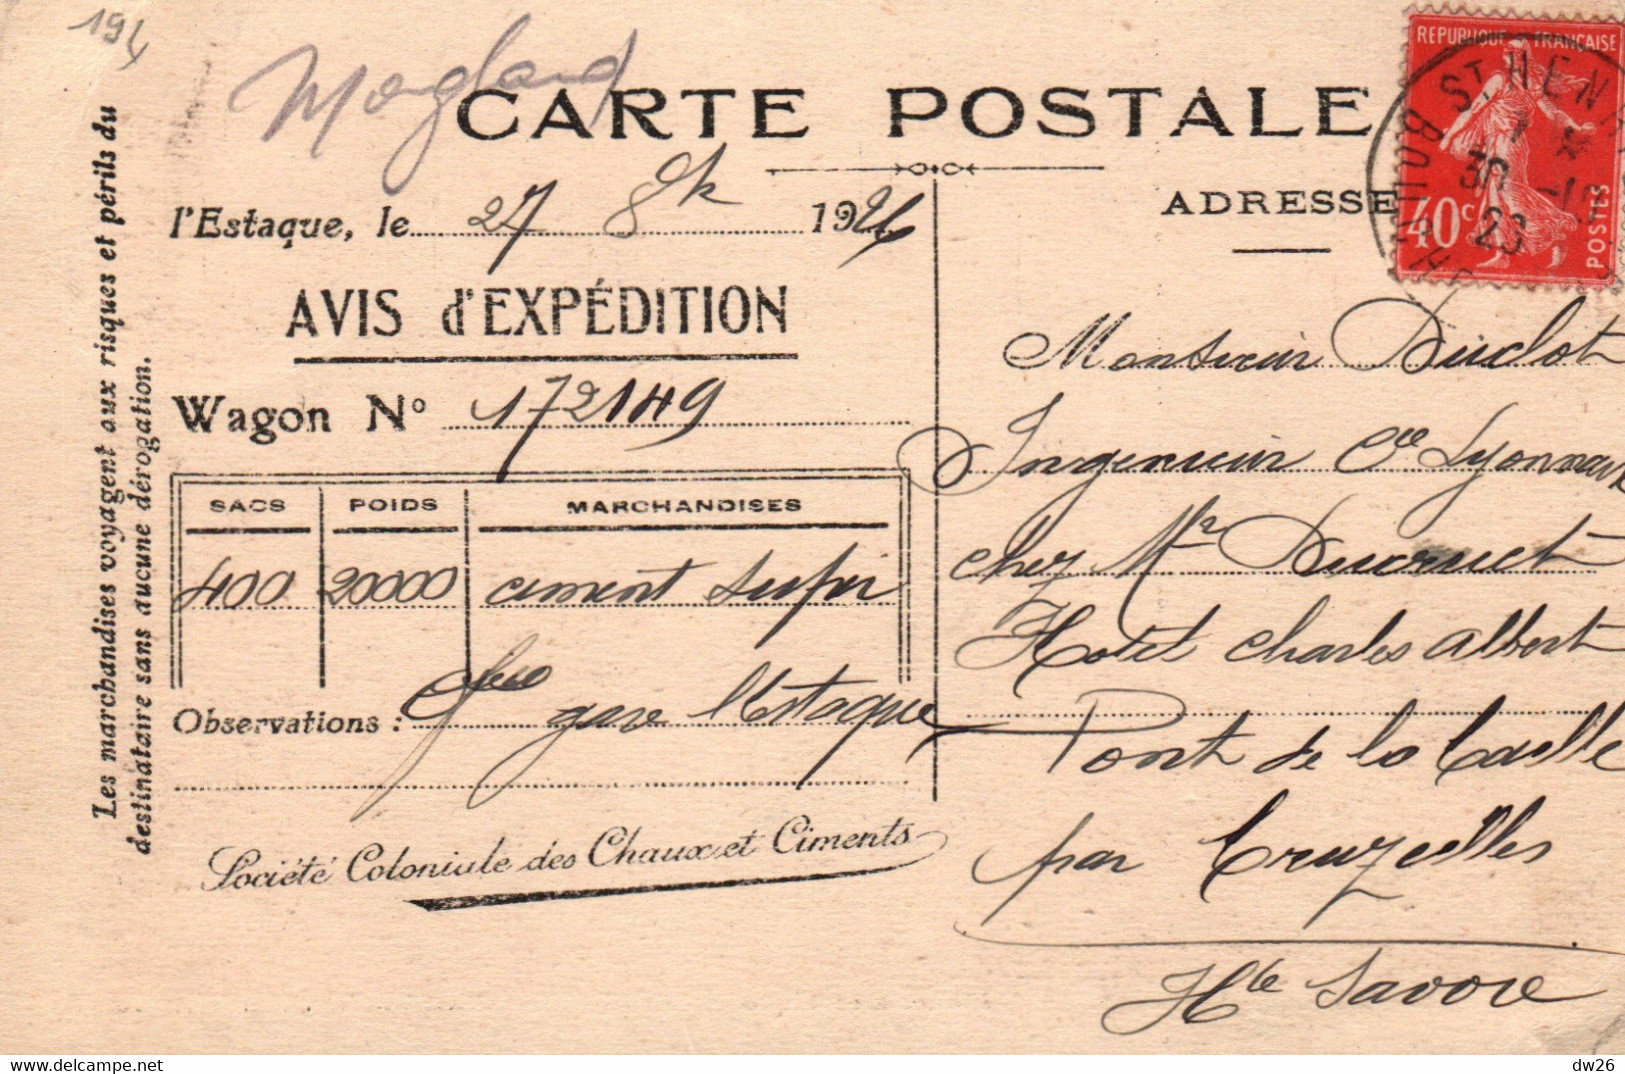 194
Mongland
CARTE POSTALE
l'Estaque, le 27 8bre 1926
AVIS d'EXPÉDITION
Wagon N° 172149
SACS POIDS MARCHANDISES
400 20000 ciment super
Observations : gare l'Estaque
Société Coloniale des Chaux et Ciments
Les marchandises voyagent aux risques et périls du
destinataire sans aucune dérogation.
ADRESSE
REPUBLIQUE FRANÇAISE
40c
POSTES
ST HENRI
30 -10
26
BOUCHES
Monsieur Didot
Ingenieur Cie Lyonnaise
chez Mr Ducruet
Hotel Charles Albert
Pont de la Caille
par Cruzeilles
Hte Savoie
dw26